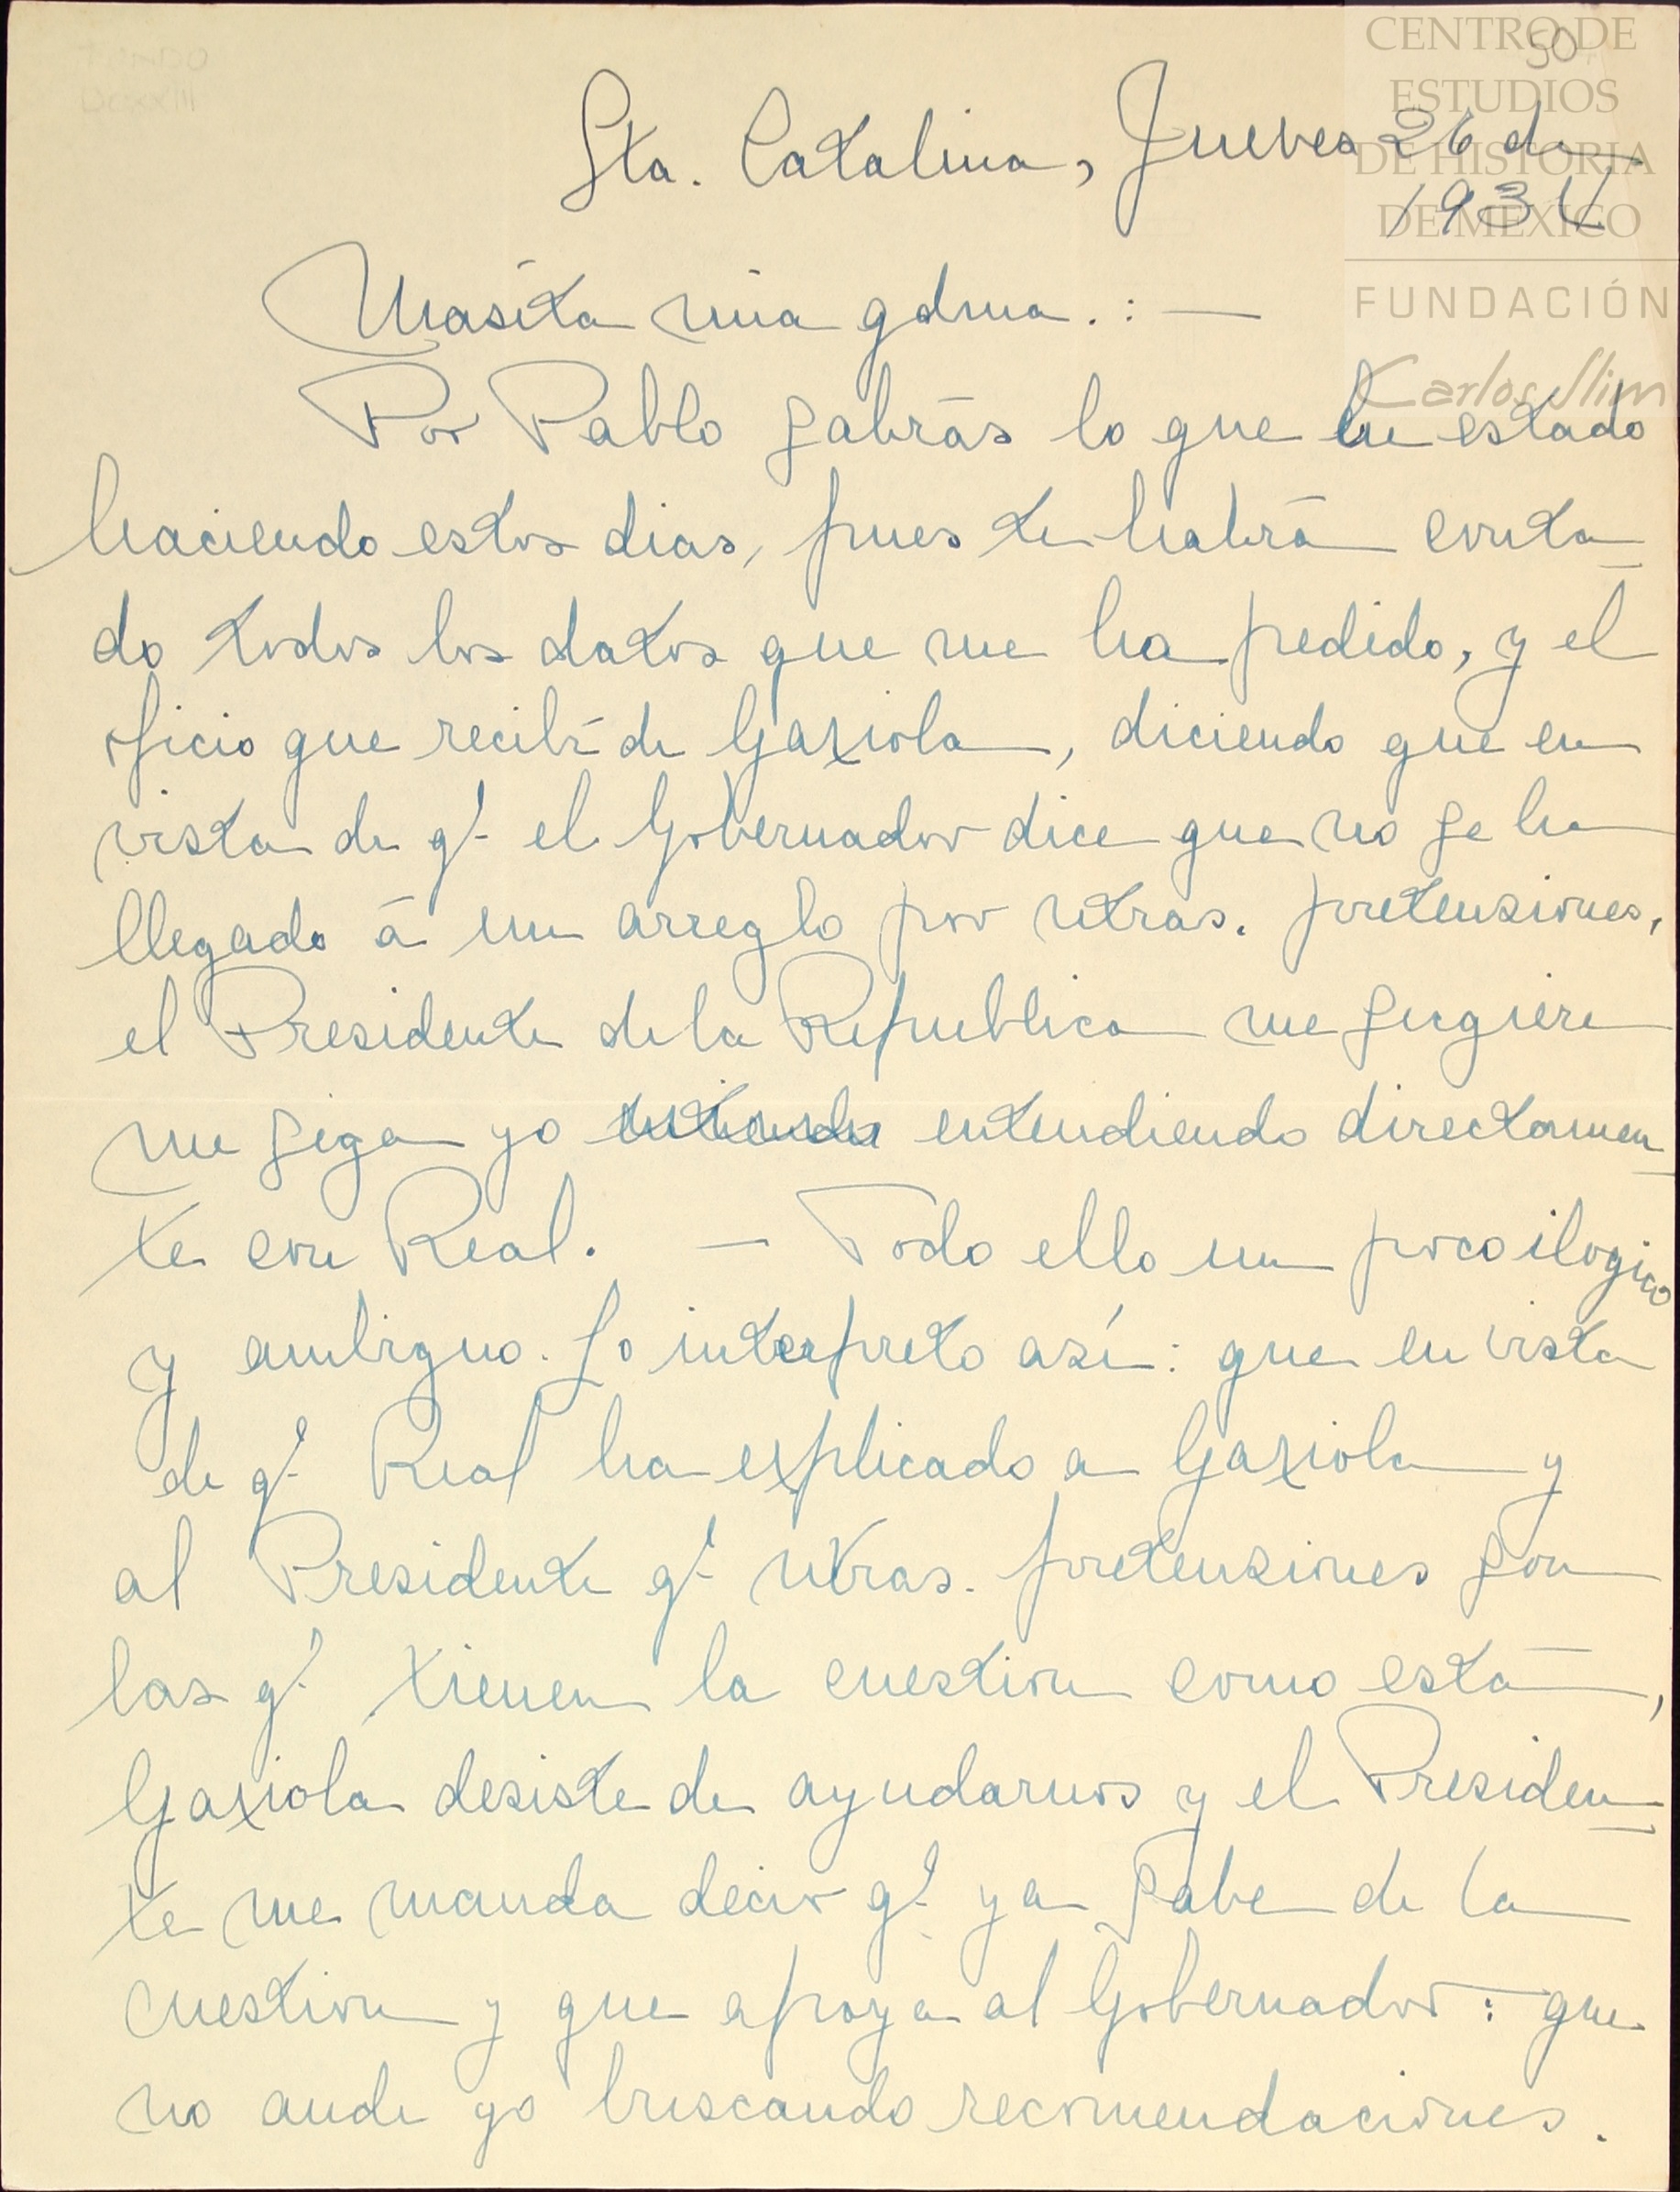 CENTRO DE
ESTUDIOS
DE HISTORIA
DE MÉXICO
FUNDACIÓN
Carlos Slim
50
Sta. Catalina, Jueves 26 de
1934
Masita mía gdma.: —
Por Pablo sabrás lo que he estado
haciendo estos dias, pues te habrá conta
do todos los datos que me ha pedido, y el
oficio que recibí de Gaxiola, diciendo que en
vista de q' el Gobernador dice que no se ha
llegado á un arreglo por ntras. pretensiones,
el Presidente de la Republica me sugiere
me siga yo entendiendo directamen
te con Real. — Todo ello un poco ilogico
y ambiguo. Lo interpreto así: que en vista
de q' Real ha explicado a Gaxiola y
al Presidente q' ntras. pretensiones son
las q' tienen la cuestion como está,
Gaxiola desiste de ayudarnos y el Presiden
te me manda decir q' ya sabe de la
cuestion y que apoya al Gobernador: que
no ande yo buscando recomendaciones.